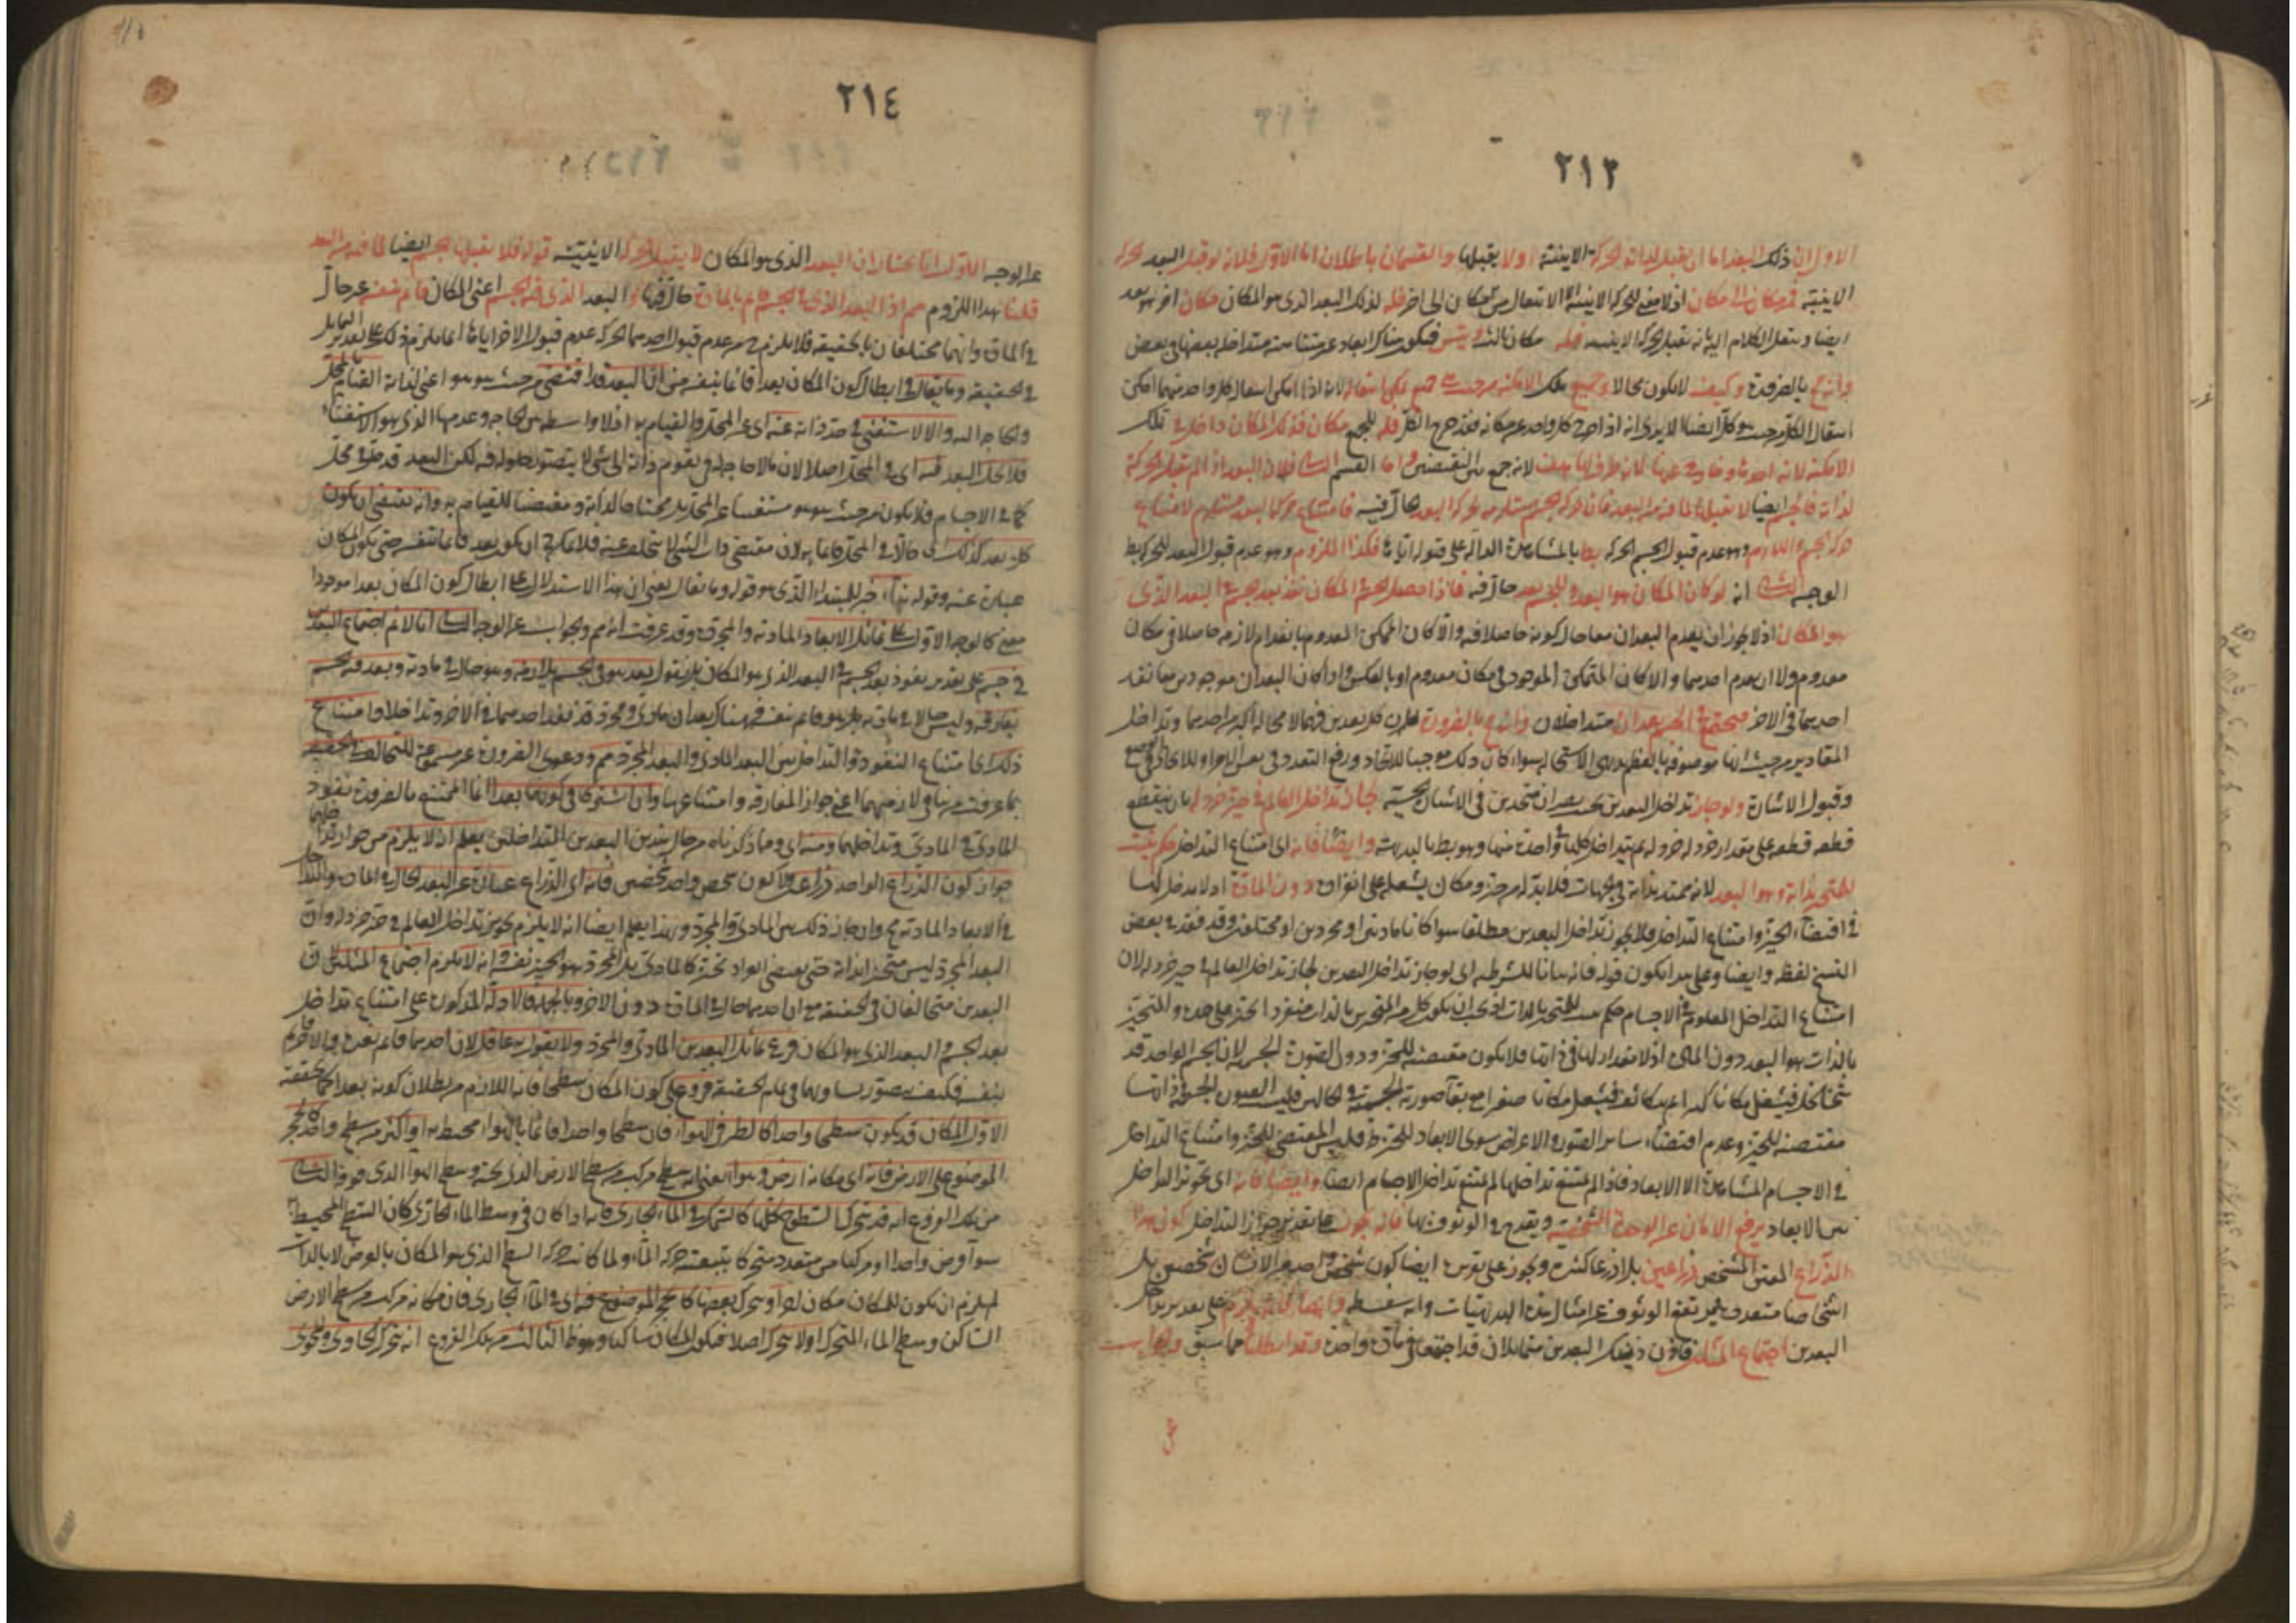 ٢١٣
الاول ان ذلك البعد اما ان يقبل لذاته الحركة الاينية اولا يقبلها والقسمان باطلان اما الاول فلانه لو قبل البعد الحركة
الاينية فمكان له مكان اذ لا معنى للحركة الاينية الا الانتقال من مكان الى اخر فله لذلك البعد الذى هو المكان مكان اخر هو بعد
ايضا وينقل الكلام اليه بانه يقبل الحركة الاينية فله مكان ثالث ويتس فيكون هناك ابعاد غير متناهية متداخلة بعضها فى بعض
وانه مح بالضرورة وكيف لا يكون محالا وجميع تلك الامكنة من حيث هى جميع يمكن انتقاله لانه اذا امكن انتقال كل واحد منهما امكن
انتقال الكل من حيث هو كل ايضا الا يرى انه اذا خرج كل واحد عن مكانه فقد خرج الكل فله للجميع مكان فذلك المكان داخل فى تلك
الامكنة لانه احدها وخارج عنها لانه ظرف لها هف لانه جمع بين النقيضين واما القسم الثانى فلان البعد اذا لم يقبل الحركة
لذاته فالجسم ايضا لا يقبلها لما فيه من البعد فان حركة الجسم مستلزمة لحركة البعد الحال فيه فامتناع حركة البعد مستلزم لامتناع
حركة الجسم واللازم وهو عدم قبول الجسم الحركة بط بالمشاهدة الدالة على قبوله اياها فكذا الملزوم وهو عدم قبول البعد للحركة بط
الوجه الثانى انه لو كان المكان هو البعد وللجسم بعد حال فيه فاذا حصل الجسم فى المكان نفذ بعد الجسم فى البعد الذى
هو المكان اذ لا يجوز ان يعدم البعدان معا حال كونه حاصلا فيه والا كان المتمكن المعدوم بانعدام لازمه حاصلا فى مكان
معدوم ولا ان يعدم احدهما والا كان المتمكن الموجود فى مكان معدوم او بالعكس واذا كان البعدان موجودين معا نفذ
احدهما فى الاخر فيجتمع فى الجسم بعدان متداخلان وانه مح بالضرورة
المقادير من حيث انها موصوفة بالعظم
وقبول الاشارة ولو جاز تداخل البعدين بحيث يصيران متحدين فى الاشارة الحسية جاز تداخل العالم فى حيز خردلة بان ينقطع
قطعة قطعة على مقدار خردلة خردلة ثم يتداخل كلها فى واحدة منها وهو بط بالبديهة وايضا فانه اى امتناع التداخل حكم يثبت
للمتحيز بذاته وهو البعد لانه ممتد بذاته فى الجهات فلا بد له من حيز ومكان يشغله على انفراد دون المادة اذ لا مدخل لها
فى اقتضاء الحيز وامتناع التداخل فلا يجوز تداخل البعدين مطلقا سوا كانا ماديين او مجردين او مختلفين وقد فقد فى بعض
النسخ لفظ وايضا وعلى هذا يكون قوله فانه بيانا للشرطية اى لو جاز تداخل البعدين لجاز تداخل العالم فى حيز خردلة لان
امتناع التداخل المعلوم فى الاجسام حكم يثبت للمتحيز بالذات
بالذات هو البعد دون المادة اذ لا مقدار لها فى ذاتها فلا يكون مقتضية للحيز ودون الصورة الجسمية لان الجسم الواحد قد
يتخلخل فيشغل مكانا كبيرا ثم يتكاثف فيشغل مكانا صغيرا مع بقاء صورته الجسمية فى الحالين فليست الصورة الجسمية فى ذاتها
مقتضية للحيز وعدم اقتضاء سائر الصور والاعراض سوى الابعاد للحيز ظ فليس المقتضى للحيز وامتناع التداخل
فى الاجسام المشاهدة الا الابعاد فاذا لم يمتنع تداخلها لم يمتنع تداخل الاجسام ايضا وايضا فانه اى تجويز التداخل
بين الابعاد يرفع الامان عن الوحدة الشخصية ويقدح فى الوثوق بها فانه يجوز على تقدير جواز التداخل كون هذا
الذراع المعين المشخص ذراعين بل اذرعا كثيرة ويجوز على تقديره ايضا كون شخص واحد من الانسان شخصين بل
اشخاصا متعددة فيرتفع الوثوق عن امثال هذه البديهيات وانه سفسطة وايضا فانه يلزم على تقدير تداخل
البعدين اجتماع المثلين فان ذينك البعدين متماثلان قد اجتمعا فى مادة واحدة وقد ابطلناه فيما سبق والجواب
٢١٤
عن الوجه الاول انا نختار ان البعد الذى هو المكان لا يقبل الحركة الاينية قوله فلا يقبلها الجسم ايضا لما فيه من البعد
قلنا هذا اللزوم مم اذ البعد الذى فى الجسم قائم بالمادة حال فيها والبعد الذى فيه الجسم اعنى المكان قائم بنفسه غير حال
فى المادة وانهما مختلفان بالحقيقة فلا يلزم من عدم قبول احدهما الحركة عدم قبول الاخر اياها انما يلزم ذلك على تقدير التماثل
فى الحقيقة وما يقال فى ابطال كون المكان بعدا قائما بنفسه من ان البعد قد اقتضى من حيث هو هو اعنى لذاته القيام بالمحل
والحاجة اليه والا لاستغنى فى حد ذاته عنه اى عن المحل والقيام به اذ لا واسطة بين الحاجة وعدمها الذى هو الاستغناء
فلا يحل البعد فيه اى فى المحل اصلا لان ما لا حاجة له فى تقوم ذاته الى شئ لا يتصور حلوله فيه لكن البعد قد حل فى محل
كما فى الاجسام فلا يكون من حيث هو هو مستغنيا عن المحل بل محتاجا لذاته ومقتضيا للقيام به وانه يقتضى ان يكون
كل بعد كذلك اى حالا فى المحل قائما به لان مقتضى ذات الشئ لا يتخلف عنه فلا يمكن ان يكون بعد قائما بنفسه حتى يكون المكان
عبارة عنه وقوله بناء خبر للمبتداء الذى هو قوله وما يقال يعنى ان هذا الاستدلال على ابطال كون المكان بعدا موجودا
مبنى كالوجه الاول على تماثل الابعاد المادية والمجردة وقد عرفت انه مم والجواب عن الوجه الثانى انا لا نم اجتماع البعدين
فى جسم على تقدير نفوذ بعد الجسم فى البعد الذى هو المكان بل نقول بعد هو فى الجسم يلازمه وهو حال فى مادته وبعد فيه الجسم
يفارقه وليس حالا فى مادته بل هو قائم بنفسه فهناك بعدان مادى ومجرد قد نفذ احدهما فى الاخر وتداخلا وامتناع
ذلك اى امتناع النفوذ والتداخل بين البعد المادى والبعد المجرد مم ودعوى الضرورة غير مسموعة للتخالف فى الحقيقة
بما عرفت من تنافى لازميهما اعنى جواز المفارقة وامتناعها وان اشتركا فى كونهما بعدا انما الممتنع بالضرورة نفوذ
المادى فى المادى وتداخلهما ومنه اى ومما ذكرناه من حال هذين البعدين المتداخلين يعلم اذ لا يلزم من جواز تداخلهما
جواز كون الذراع الواحد ذراعين ولا كون شخص واحد شخصين فانه اى الذراع عبارة عن البعد الحال فى المادة والتداخل
فى الابعاد المادية مح وان جاز ذلك بين المادى والمجرد وبهذا يعلم ايضا انه لا يلزم تجويز تداخل العالم فى حيز خردلة وان
البعد المجرد ليس متحيزا بذاته حتى يقتضى انفراد بحيزه كالمادى بل المجرد هو الحيز نفسه وانه لا يلزم اجتماع المثلين لان
البعدين متخالفان فى الحقيقة مع ان احدهما حال فى المادة دون الاخر وبالجملة فالادلة المذكورة على امتناع تداخل
بعد الجسم والبعد الذى هو المكان فرع تماثل البعدين المادى والمجرد ولا يقول به عاقل لان احدهما قائم بغيره والاخر قائم
بنفسه فكيف يتصور تساويهما فى تمام الحقيقة فروع على كون المكان سطحا فانه اللازم من بطلان كونه بعدا
الاول المكان قد يكون سطحا واحدا كالطير فى الهواء فان سطحا واحدا قائما بالهواء محيط به او اكثر من سطح واحد كالحجر
الموضوع على الارض فانه اى مكانه ارض وهواء يعنى انه سطح مركب من سطح الارض الذى تحته وسطح الهواء الذى فوقه الثانى
من تلك الفروع انه قد يتحرك السطوح كلها كالسمك فى الماء الجارى فانه اذا كان فى وسط الماء الجارى كان السطح المحيط به
سوآء فرض واحدا او مركبا من متعدد متحركا بتبعية حركة الماء ولما كانت حركة السطح الذى هو المكان بالعرض لا بالذات
لم يلزم ان يكون للمكان مكان اخر او يتحرك بعضها كالحجر الموضوع فيه اى فى الماء الجارى فان مكانه مركب من سطح الارض
الساكن وسطح الماء المتحرك او لا يتحرك اصلا فيكون المكان ساكنا وهو ظ الثالث من تلك الفروع انه يتحرك الحاوى والمحوى